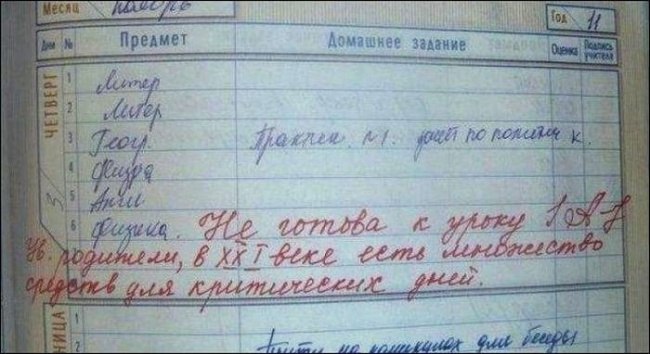 Месяц ноябрь Год 11
Дни № Предмет Домашнее задание Оценка Подпись учителя
ЧЕТВЕРГ
1 Литер
2 Литер
3 Геогр. Практич. №1. по
4 Физра
5 Англ
6 Физика. Не готова к уроку
Ув. родители, в XXI веке есть множество
средств для критических дней.
1
2 на каникулах для беседы